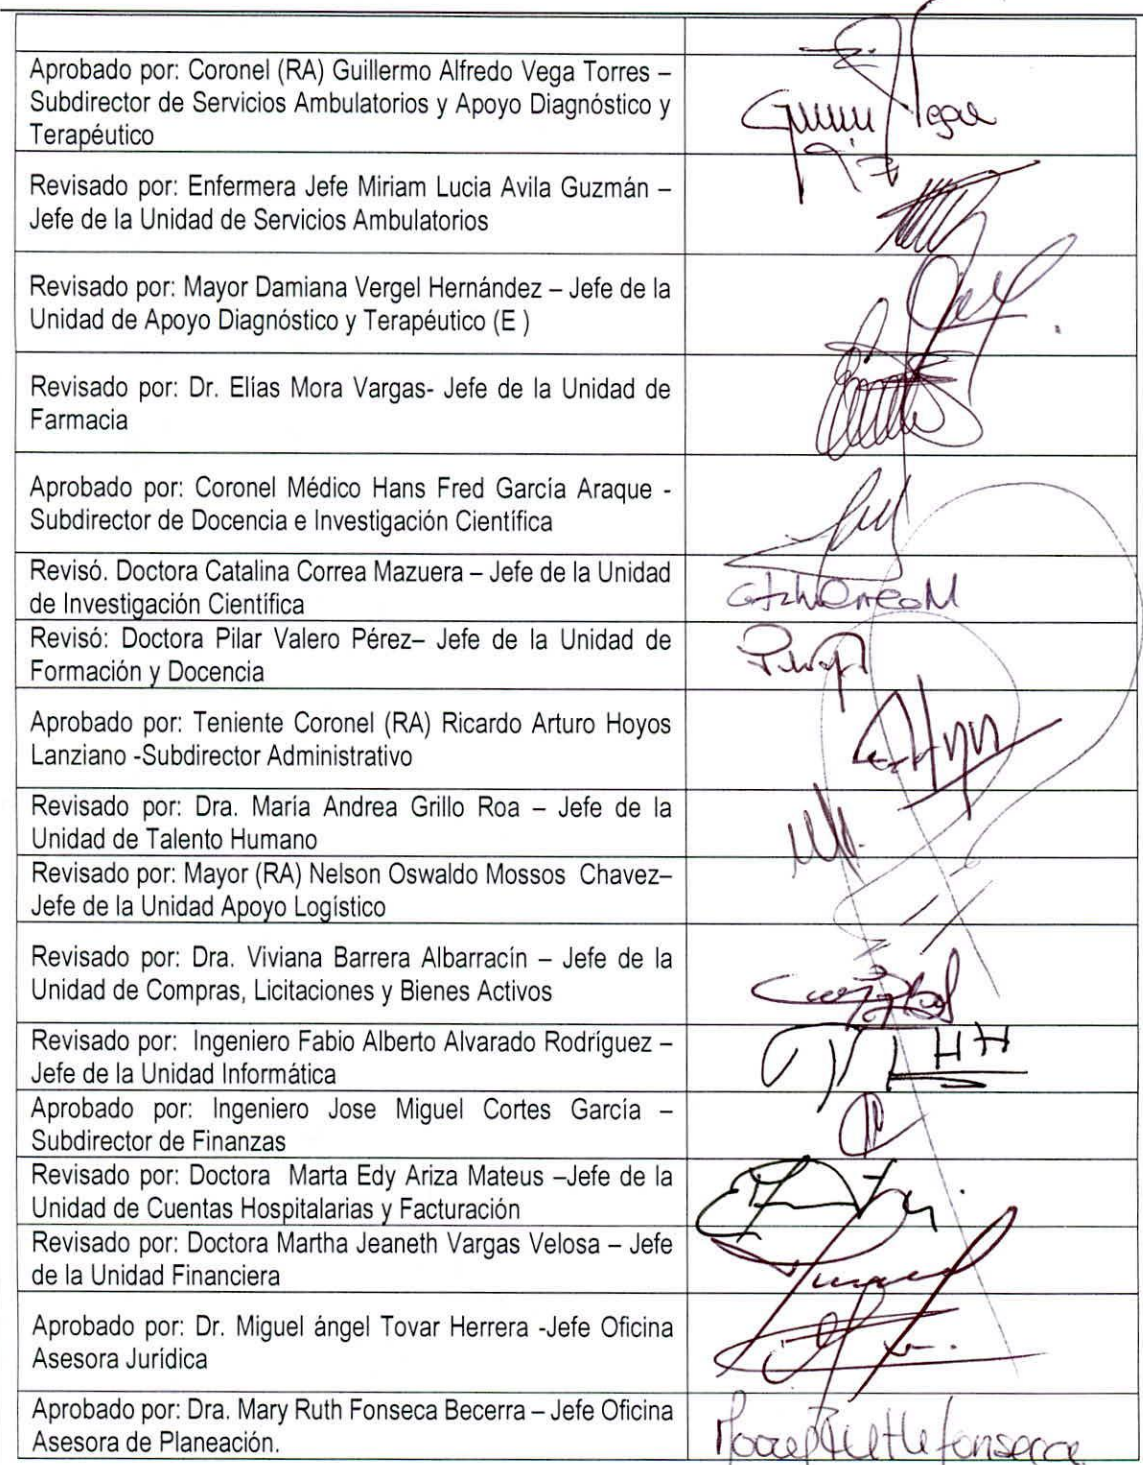 Aprobado por: Coronel (RA) Guillermo Alfredo Vega Torres –
Subdirector de Servicios Ambulatorios y Apoyo Diagnóstico y
Terapéutico
Revisado por: Enfermera Jefe Miriam Lucia Avila Guzmán –
Jefe de la Unidad de Servicios Ambulatorios
Revisado por: Mayor Damiana Vergel Hernández – Jefe de la
Unidad de Apoyo Diagnóstico y Terapéutico (E )
Revisado por: Dr. Elías Mora Vargas- Jefe de la Unidad de
Farmacia
Aprobado por: Coronel Médico Hans Fred García Araque -
Subdirector de Docencia e Investigación Científica
Revisó. Doctora Catalina Correa Mazuera – Jefe de la Unidad
de Investigación Científica
Revisó: Doctora Pilar Valero Pérez– Jefe de la Unidad de
Formación y Docencia
Aprobado por: Teniente Coronel (RA) Ricardo Arturo Hoyos
Lanziano -Subdirector Administrativo
Revisado por: Dra. María Andrea Grillo Roa – Jefe de la
Unidad de Talento Humano
Revisado por: Mayor (RA) Nelson Oswaldo Mossos Chavez–
Jefe de la Unidad Apoyo Logístico
Revisado por: Dra. Viviana Barrera Albarracín – Jefe de la
Unidad de Compras, Licitaciones y Bienes Activos
Revisado por: Ingeniero Fabio Alberto Alvarado Rodríguez –
Jefe de la Unidad Informática
Aprobado por: Ingeniero Jose Miguel Cortes García –
Subdirector de Finanzas
Revisado por: Doctora Marta Edy Ariza Mateus –Jefe de la
Unidad de Cuentas Hospitalarias y Facturación
Revisado por: Doctora Martha Jeaneth Vargas Velosa – Jefe
de la Unidad Financiera
Aprobado por: Dr. Miguel ángel Tovar Herrera -Jefe Oficina
Asesora Jurídica
Aprobado por: Dra. Mary Ruth Fonseca Becerra – Jefe Oficina
Asesora de Planeación.